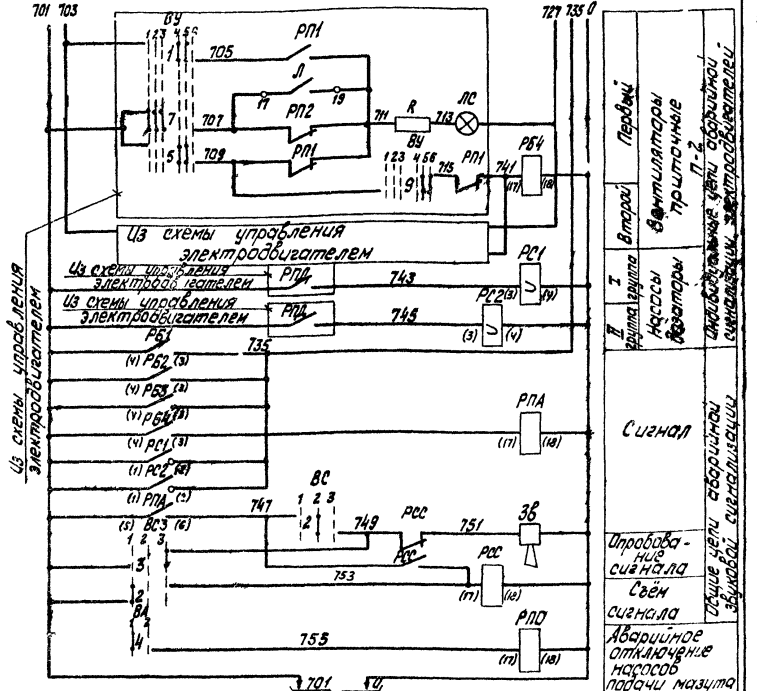 701 703
727 735 0
ВУ
1 2 3 4 5 6
1
705
РП1
Л
17
19
7
707
РП2
711
R
713
ЛС
5
709
РП1
ВУ
1 2 3 4 5 6
9
715
РП1
741
РБ4
(17) (18)
Из схемы управления
электродвигателем
Из схемы управления
электродвигателем
РПД
743
РС1
(3) (4)
Из схемы управления
электродвигателем
РПД
745
РС2
(3) (4)
РБ1
735
(4) РБ2 (3)
(4) РБ3 (3)
(4) РБ4 (3)
(4) РС1 (3)
(1) РС2
(1) РПА (2)
(5) ВС3 (6)
РПА
(17) (18)
747
ВС
1 2 3
2
749
РСС
751
ЗВ
РСС
1 2 3
3
753
РСС
(17) (18)
2
ВА
1 2
4
755
РПО
(17) (18)
701
0
Из схемы управления
электродвигателем
Первый
Второй
Вентиляторы
приточные
П-2
I группа
II группа
Насосы
Индивидуальные цепи аварийной
сигнализации электродвигателей
Сигнал
Опробова-
ние
сигнала
Съём
сигнала
Общие цепи аварийной
звуковой сигнализации
Аварийное
отключение
насосов
подачи мазута